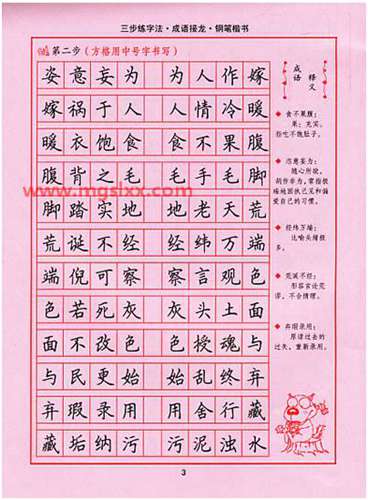 三步练字法·成语接龙·钢笔楷书
第二步（方格用中号字书写）
姿意妄为 为人作嫁
嫁祸于人 人情冷暖
暖衣饱食 食不果腹
腹背之毛 毛手毛脚
脚踏实地 地老天荒
荒诞不经 经纬万端
端倪可察 察言观色
色若死灰 灰头土面
面不改色 色授魂与
与民更始 始乱终弃
弃瑕录用 用舍行藏
藏垢纳污 污泥浊水
成语释义
食不果腹：
果：充实。
指吃不饱肚子。
恣意妄为：
随心所欲，
胡作非为，常指极
端地固执己见和偏
爱自己的习惯。
经纬万端：
比喻头绪很
多。
荒诞不经：
形容言论荒
谬，不合情理。
弃瑕录用：
原谅过去的
过失，重新录用。
www.mgslxx.com
3